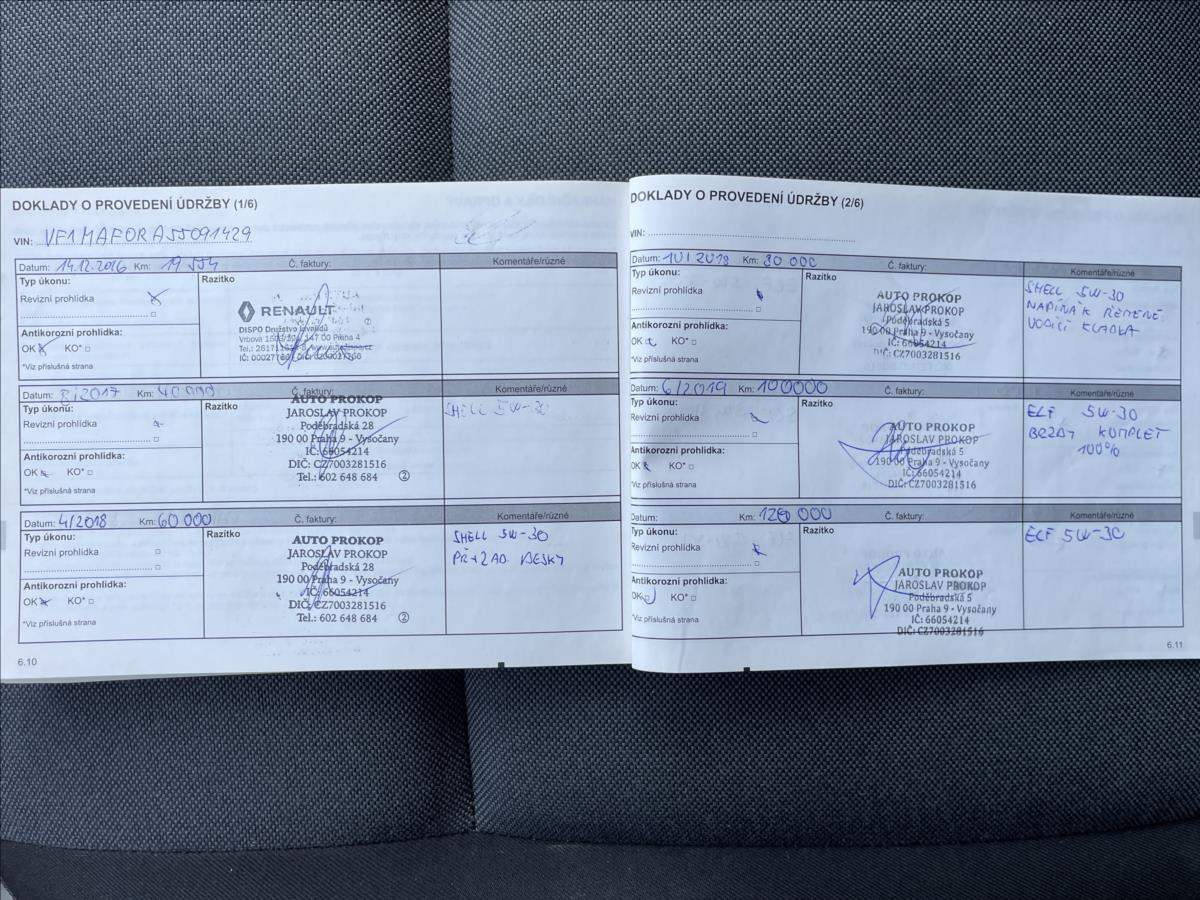 DOKLADY O PROVEDENÍ ÚDRŽBY (1/6)
VIN: VF1MAF0RA55091429
Datum: 14.12.2016 Km: 19 554 Č. faktury: Komentáře/různé
Typ úkonu: Razítko
Revizní prohlídka
RENAULT
DISPO Družstvo invalidů
Antikorozní prohlídka:
OK KO*
*Viz příslušná strana
Datum: 2017 Km: 40 000 Č. faktury: Komentáře/různé
Typ úkonu: Razítko
Revizní prohlídka
Antikorozní prohlídka:
OK KO*
*Viz příslušná strana
AUTO PROKOP
JAROSLAV PROKOP
Poděbradská 28
190 00 Praha 9 - Vysočany
IČ: 66054214
DIČ: CZ7003281516
Tel.: 602 648 684 2
SHELL 5W-30
Datum: 4/2018 Km: 60 000 Č. faktury: Komentáře/různé
Typ úkonu: Razítko
Revizní prohlídka
Antikorozní prohlídka:
OK KO*
*Viz příslušná strana
AUTO PROKOP
JAROSLAV PROKOP
Poděbradská 28
190 00 Praha 9 - Vysočany
IČ: 66054214
DIČ: CZ7003281516
Tel.: 602 648 684 2
SHELL 5W-30
DESKY
6.10
DOKLADY O PROVEDENÍ ÚDRŽBY (2/6)
VIN:
Datum: 2018 Km: 80 000 Č. faktury: Komentáře/různé
Typ úkonu: Razítko
Revizní prohlídka
Antikorozní prohlídka:
OK KO*
*Viz příslušná strana
AUTO PROKOP
JAROSLAV PROKOP
Poděbradská 5
190 00 Praha 9 - Vysočany
IČ: 66054214
DIČ: CZ7003281516
SHELL 5W-30
NAPÍNÁK ŘEMENE
VODÍCÍ KLADKA
Datum: 6/2019 Km: 100000 Č. faktury: Komentáře/různé
Typ úkonu: Razítko
Revizní prohlídka
Antikorozní prohlídka:
OK KO*
*Viz příslušná strana
AUTO PROKOP
JAROSLAV PROKOP
Poděbradská 5
190 00 Praha 9 - Vysočany
IČ: 66054214
DIČ: CZ7003281516
ELF 5W-30
BRZDY KOMPLET
100%
Datum: Km: 120 000 Č. faktury: Komentáře/různé
Typ úkonu: Razítko
Revizní prohlídka
Antikorozní prohlídka:
OK KO*
*Viz příslušná strana
AUTO PROKOP
JAROSLAV PROKOP
Poděbradská 5
190 00 Praha 9 - Vysočany
IČ: 66054214
DIČ: CZ7003281516
ELF 5W-30
6.11